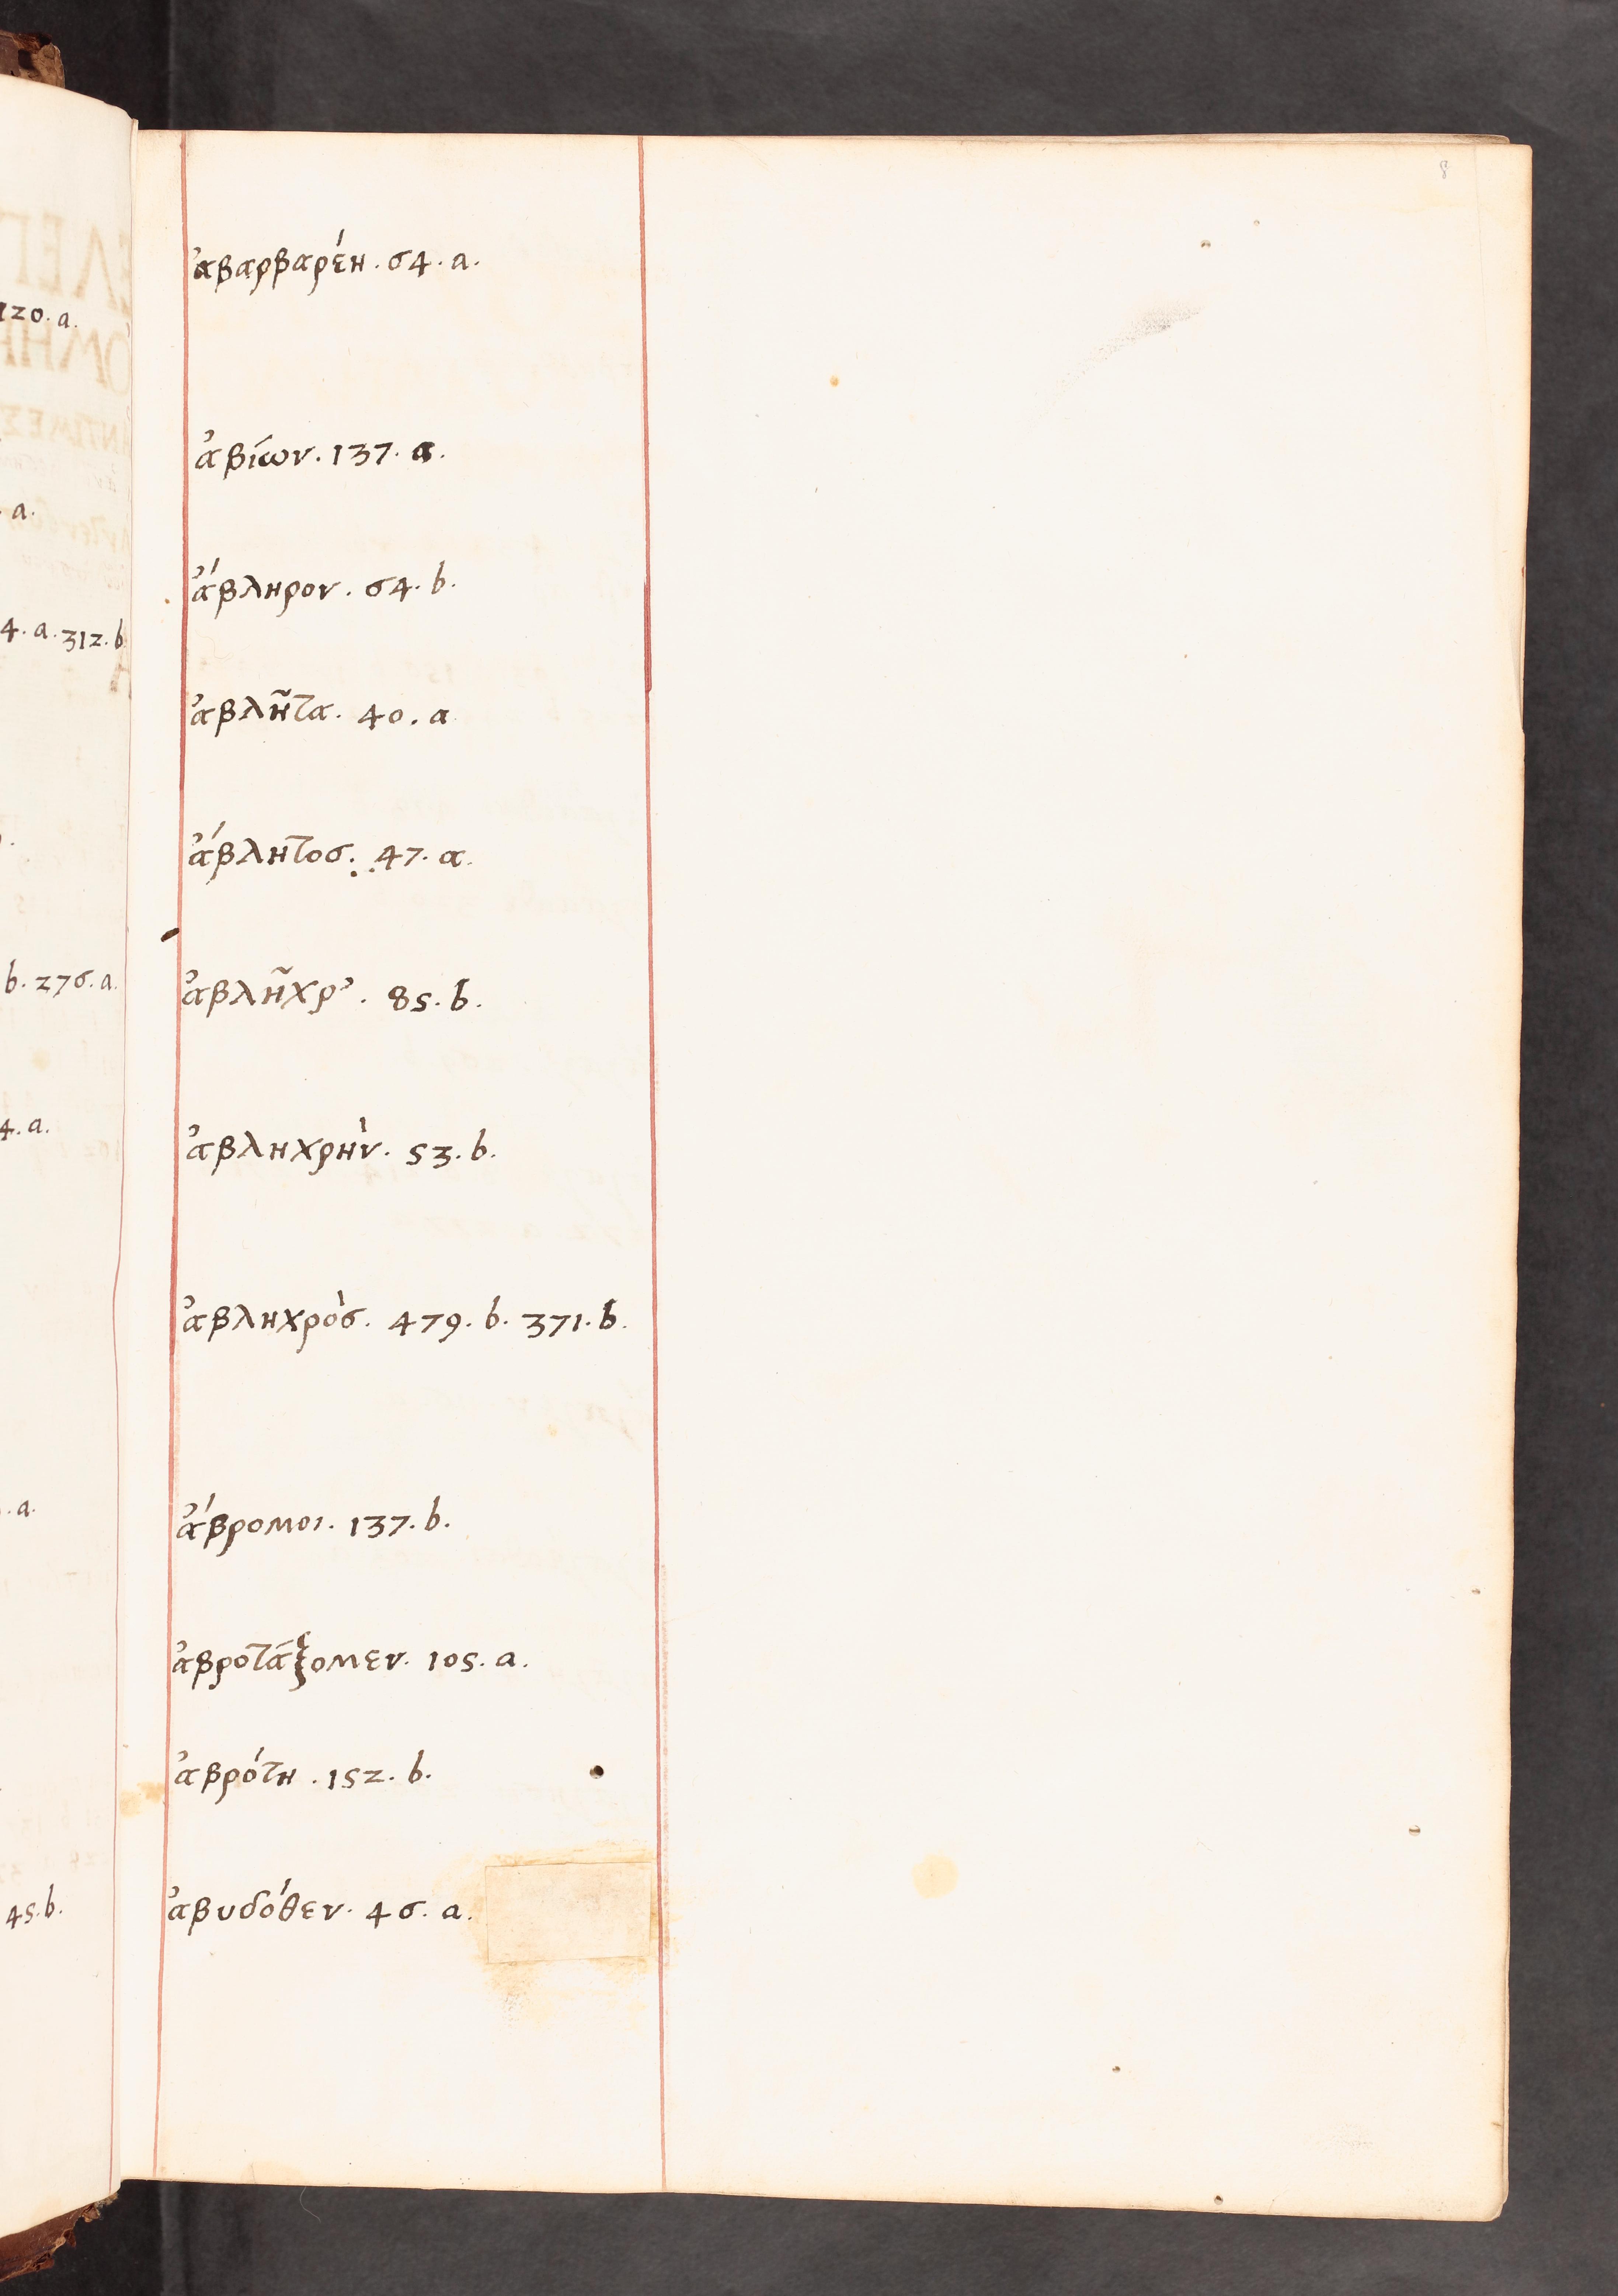 8
ἀβαρβαρέη . 64. a.
ἀβίων. 137. a.
ἄβληρον. 64. b.
ἀβλῆτα. 40. a
ἄβλητοσ. 47. a.
ἀβλῆχρ᾽. 85. b.
ἀβληχρὴν. 53. b.
ἀβληχρὸσ. 479. b. 371. b.
ἄβρομοι. 137. b.
ἀβροτάξομεν. 105. a.
ἀβρότη . 152. b.
ἀβυδόθεν. 46. a.
120. a.
. a.
4. a. 312. b
b. 276. a.
4. a.
. a.
45. b.